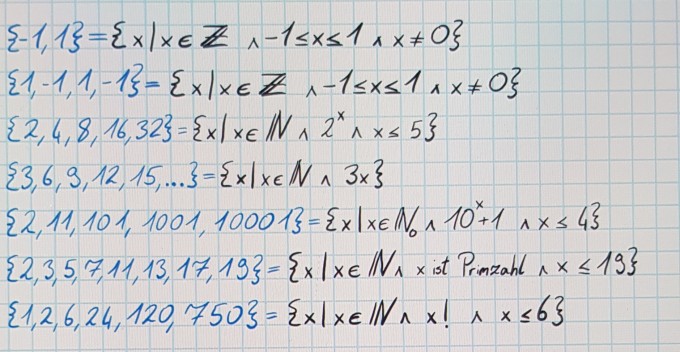 {-1, 1} = {x | x ∈ ℤ ∧ -1 ≤ x ≤ 1 ∧ x ≠ 0}
{1, -1, 1, -1} = {x | x ∈ ℤ ∧ -1 ≤ x ≤ 1 ∧ x ≠ 0}
{2, 4, 8, 16, 32} = {x | x ∈ ℕ ∧ 2ˣ ∧ x ≤ 5}
{3, 6, 9, 12, 15, ...} = {x | x ∈ ℕ ∧ 3x}
{2, 11, 101, 1001, 10001} = {x | x ∈ ℕ₀ ∧ 10ˣ+1 ∧ x ≤ 4}
{2, 3, 5, 7, 11, 13, 17, 19} = {x | x ∈ ℕ ∧ x ist Primzahl ∧ x ≤ 19}
{1, 2, 6, 24, 120, 750} = {x | x ∈ ℕ ∧ x! ∧ x ≤ 6}